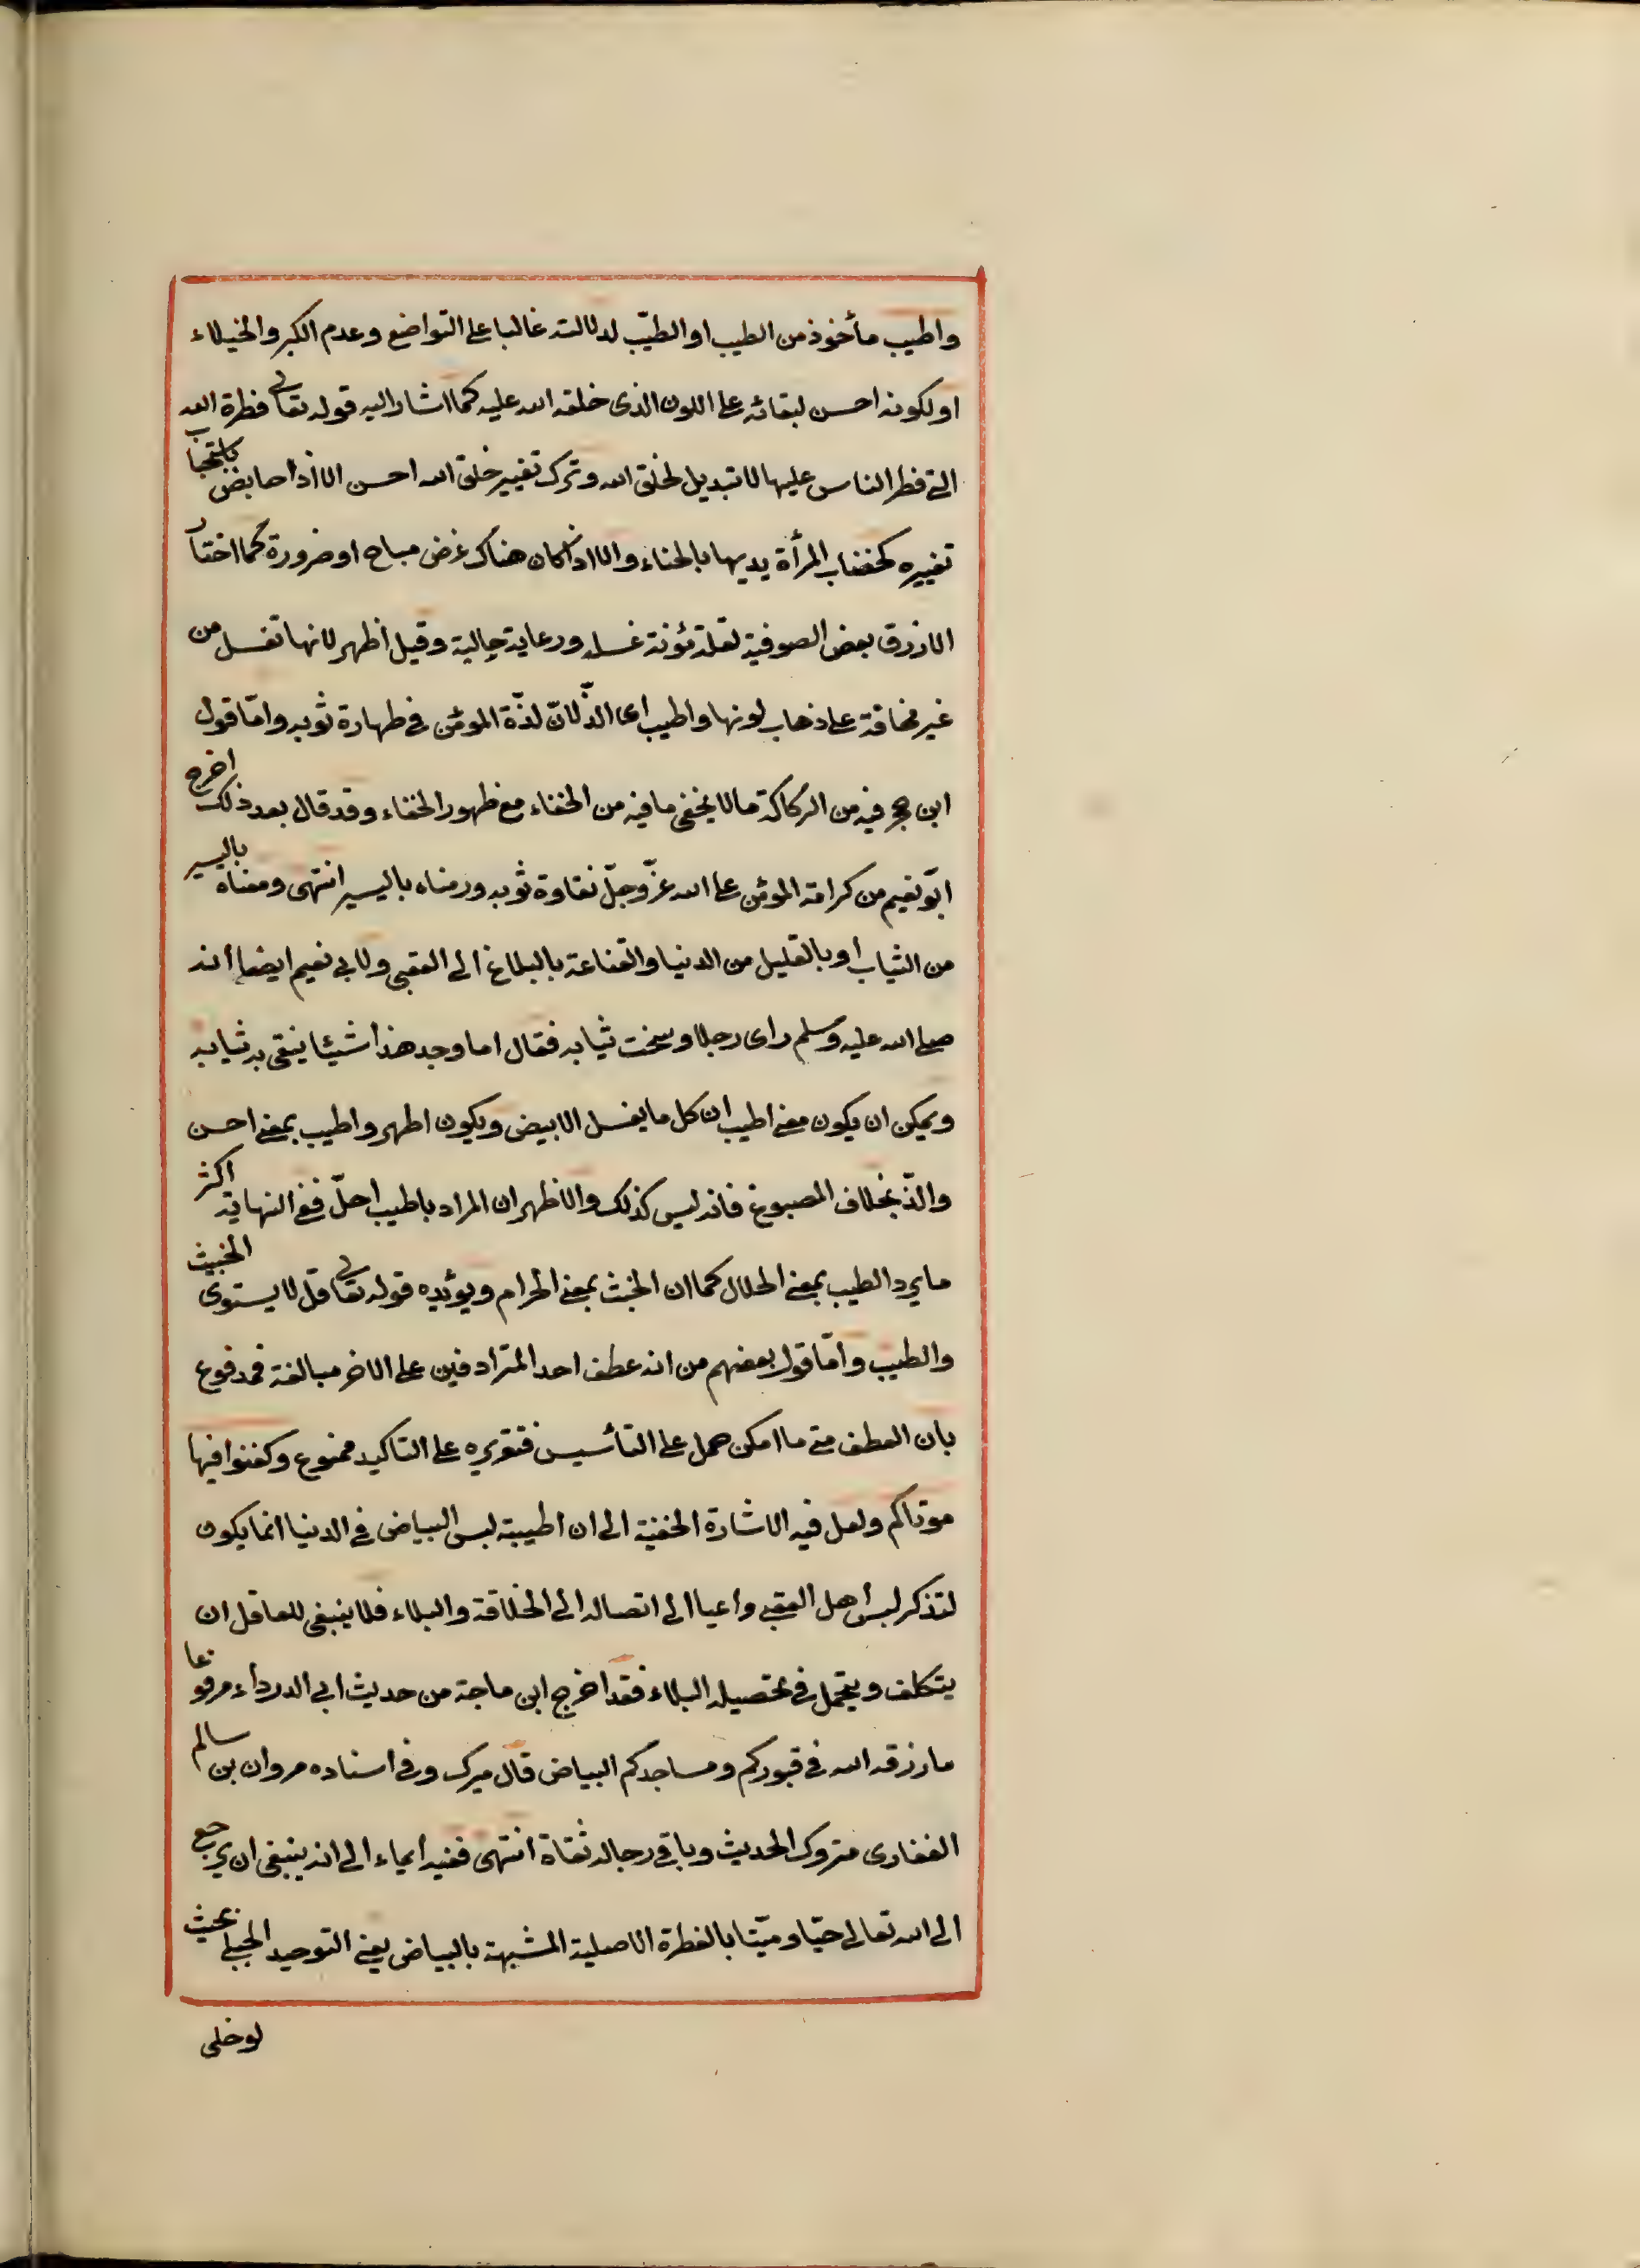 واطيب مأخوذ من الطيب او الطيّب لدلالته غالبا على التواضع وعدم الكبر والخيلاء
او لكونه احسن لبقائه على اللون الذى خلقه الله عليه كما اشار اليه قوله تعالى فطرة الله
التى فطر الناس عليها لا تبديل لخلق الله وترك تغيير خلق الله احسن الا اذا جا بض باستحباب
تغييره كخضاب المرأة يديها بالحناء والا اذا كان هناك غرض مباح او ضرورة كما اختار
الازرق بعض الصوفية لقلة مؤنة غسله ورعاية حاليه وقيل اظهر لانها تغسل من
غير مخافة على ذهاب لونها واطيب اى الذ لانّ لذّة المؤمن فى طهارة ثوبه وامّا قول
ابن حجر فيه من الركاكة ما لا يخفى ما فيه من الخفاء مع ظهور الخفاء وقد قال بعد ذلك اخرج
ابو نعيم من كرامة المؤمن على الله عزّ وجلّ نقاوة ثوبه ورضاه باليسير انتهى ومعناه باليسير
من الثياب او بالقليل من الدنيا والقناعة بالبلاغ الى العقبى ولابى نعيم ايضا انه
صلى الله عليه وسلم راى رجلا وسخت ثيابه فقال اما وجد هذا شيئا ينقى به ثيابه
ويمكن ان يكون معنى اطيب ان كل ما يغسل الابيض ويكون اطهر واطيب بمعنى احسن
والذّ بخلاف المصبوغ فانه ليس كذلك والاظهر ان المراد باطيب احلّ ففى النهاية اكثر
ما يرد الطيب بمعنى الحلال كما ان الخبث بمعنى الحرام ويؤيده قوله تعالى قل لا يستوى الخبيث
والطيب وامّا قول بعضهم من انه عطف احد المترادفين على الاخر مبالغة فمدفوع
بان العطف متى ما امكن حمل على التأسيس فتقريره على التاكيد ممنوع وكفنوا فيها
موتاكم ولعل فيه الاشارة الخفية الى ان اطيبية لبس البياض فى الدنيا انما يكون
لتذكر لبس اهل العقبى واعياا الى اتصاله الى الخلاقة والبلاء فلا ينبغى للعاقل ان
يتكلف ويتحمل فى تحصيله البلاء فقد اخرج ابن ماجة من حديث ابى الدرداء مرفوعا
ما زرقه الله فى قبوركم ومساجدكم البياض قال ميرك وفى اسناده مروان بن سالم
الغفارى متروك الحديث وباقى رجاله ثقاة انتهى ففيه ايماء الى انه ينبغى ان يرجع
الى الله تعالى حيّا وميّتا بالفطرة الاصلية المشبهة بالبياض يعنى التوحيد الجبلى بحيث
لو خلى